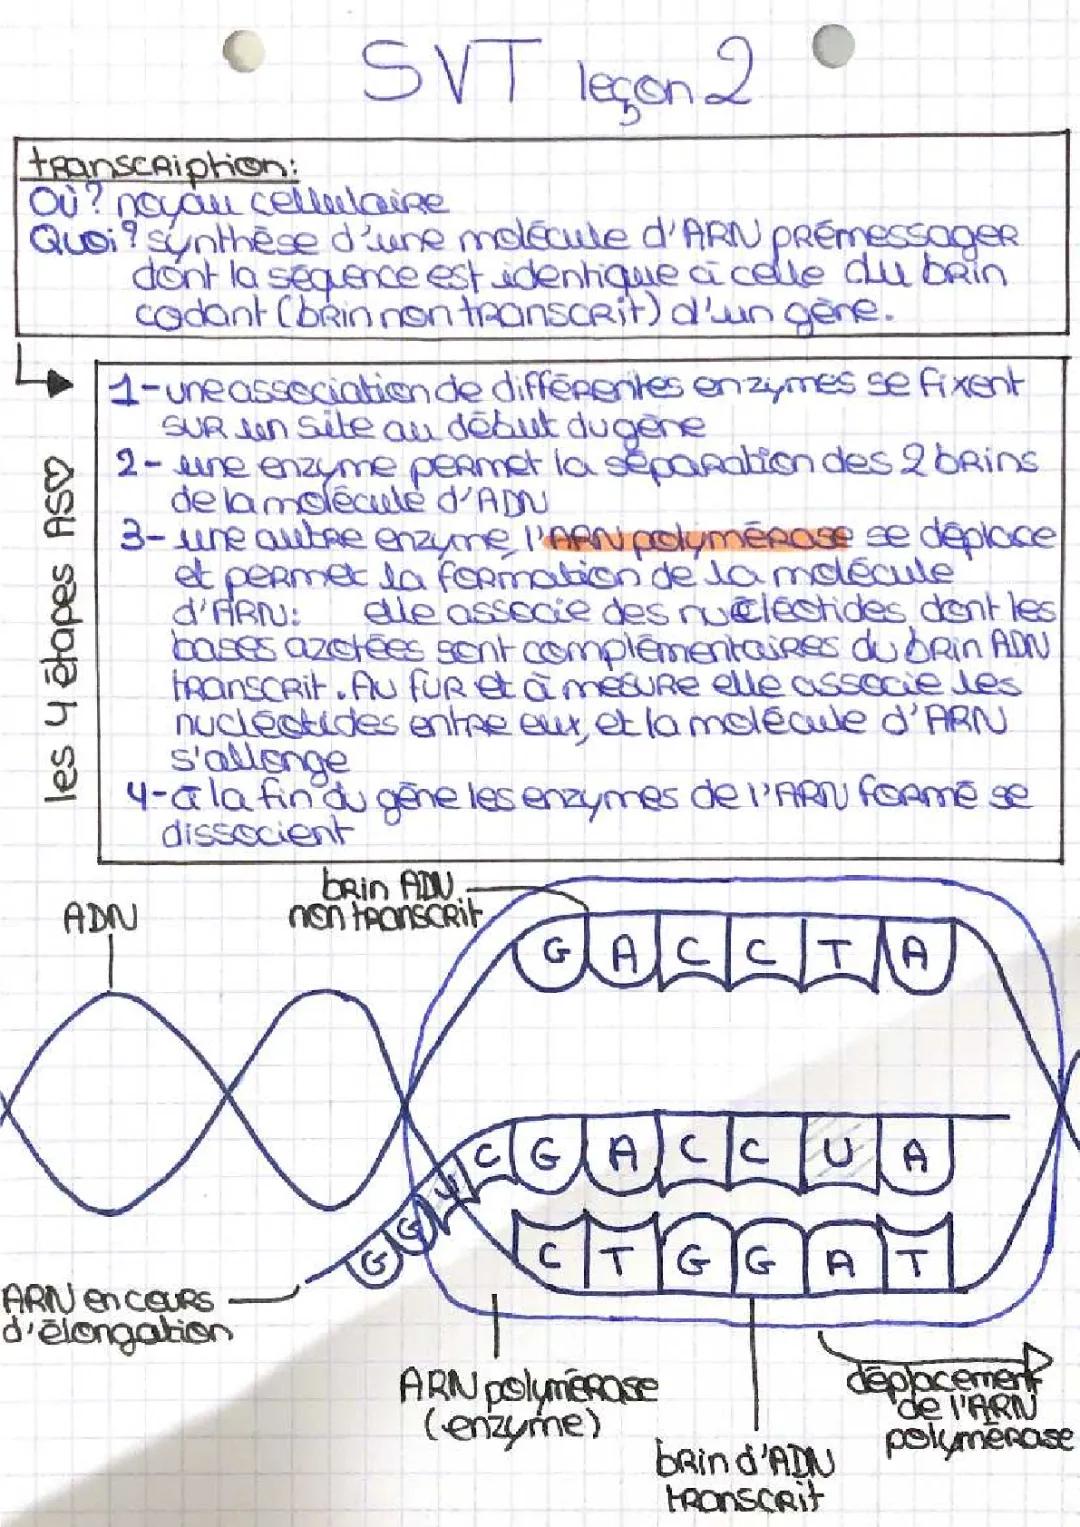 SVT leçon 2
transcription:
Où? noyau cellulaire
Quoi? synthèse d'une molécule d'ARN prémessager
dont la séquence est identique à celle du brin
codant (brin non transcrit) d'un gène.
les 4 étapes AS♡
1- une association de différentes enzymes se fixent
sur un site au début du gène
2- une enzyme permet la séparation des 2 brins
de la molécule d'ADN
3- une autre enzyme, l'ARN polymérase se déplace
et permet la formation de la molécule
d'ARN: elle associe des nucléotides dont les
bases azotées sont complémentaires du brin ADN
transcrit. Au fur et à mesure elle associe les
nucléotides entre eux, et la molécule d'ARN
s'allonge
4- à la fin du gène les enzymes de l'ARN formé se
dissocient
brin ADN
non transcrit
ADN
G A C C T A
G G U C G A C C U A
C T G G A T
ARN en cours
d'élongation
ARN polymérase
(enzyme)
brin d'ADN
transcrit
déplacement
de l'ARN
polymérase